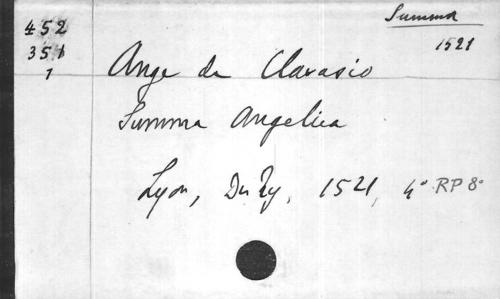 Summa
1521
452
351
1
Ange de Clavasio
Summa Angelica
Lyon, Du Ry, 1521, 4° RP 8°